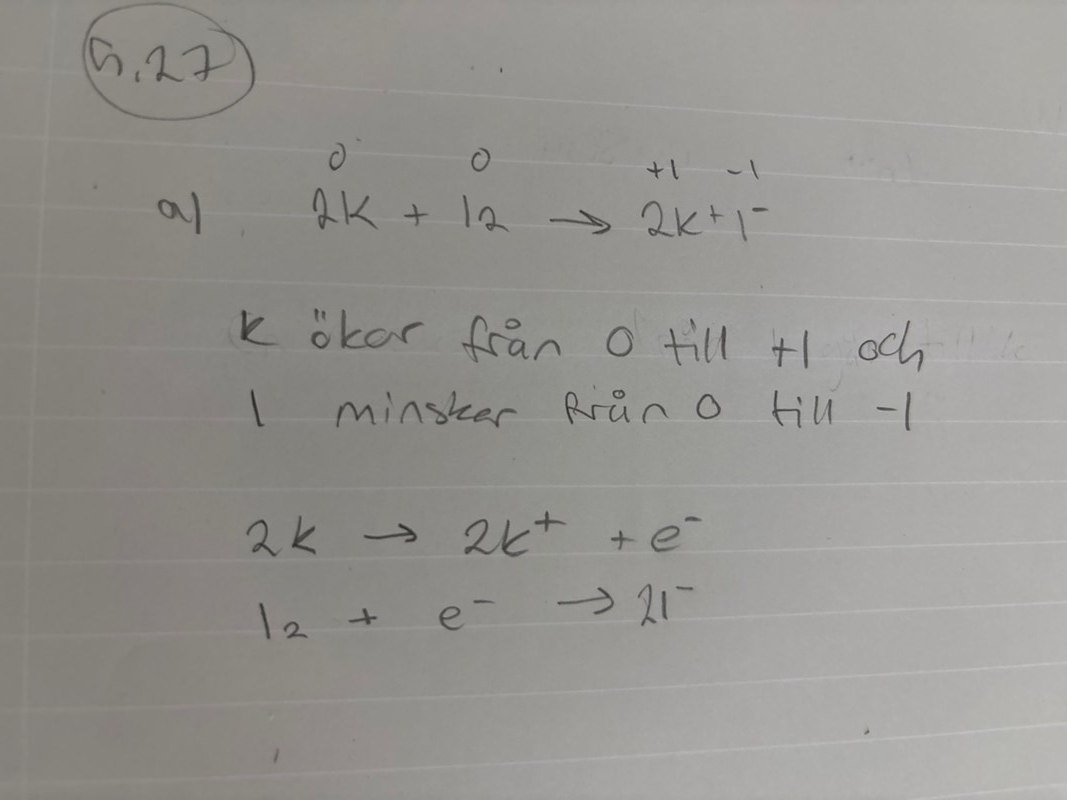 5.27
0 0 +1 -1
a) 2K + I2 → 2K+I-
K ökar från 0 till +1 och
I minsker från 0 till -1
2K → 2K+ + e-
I2 + e- → 2I-